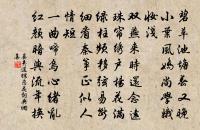 碧草池塘春又晚
小葉風嬌尚學娥
妝淺
雙燕來時還念遠
珠簾繡戶楊花滿
綠柱頻移弦易斷
細看秦箏正似人
情短
一曲啼烏心緒亂
紅顏暗與流年換